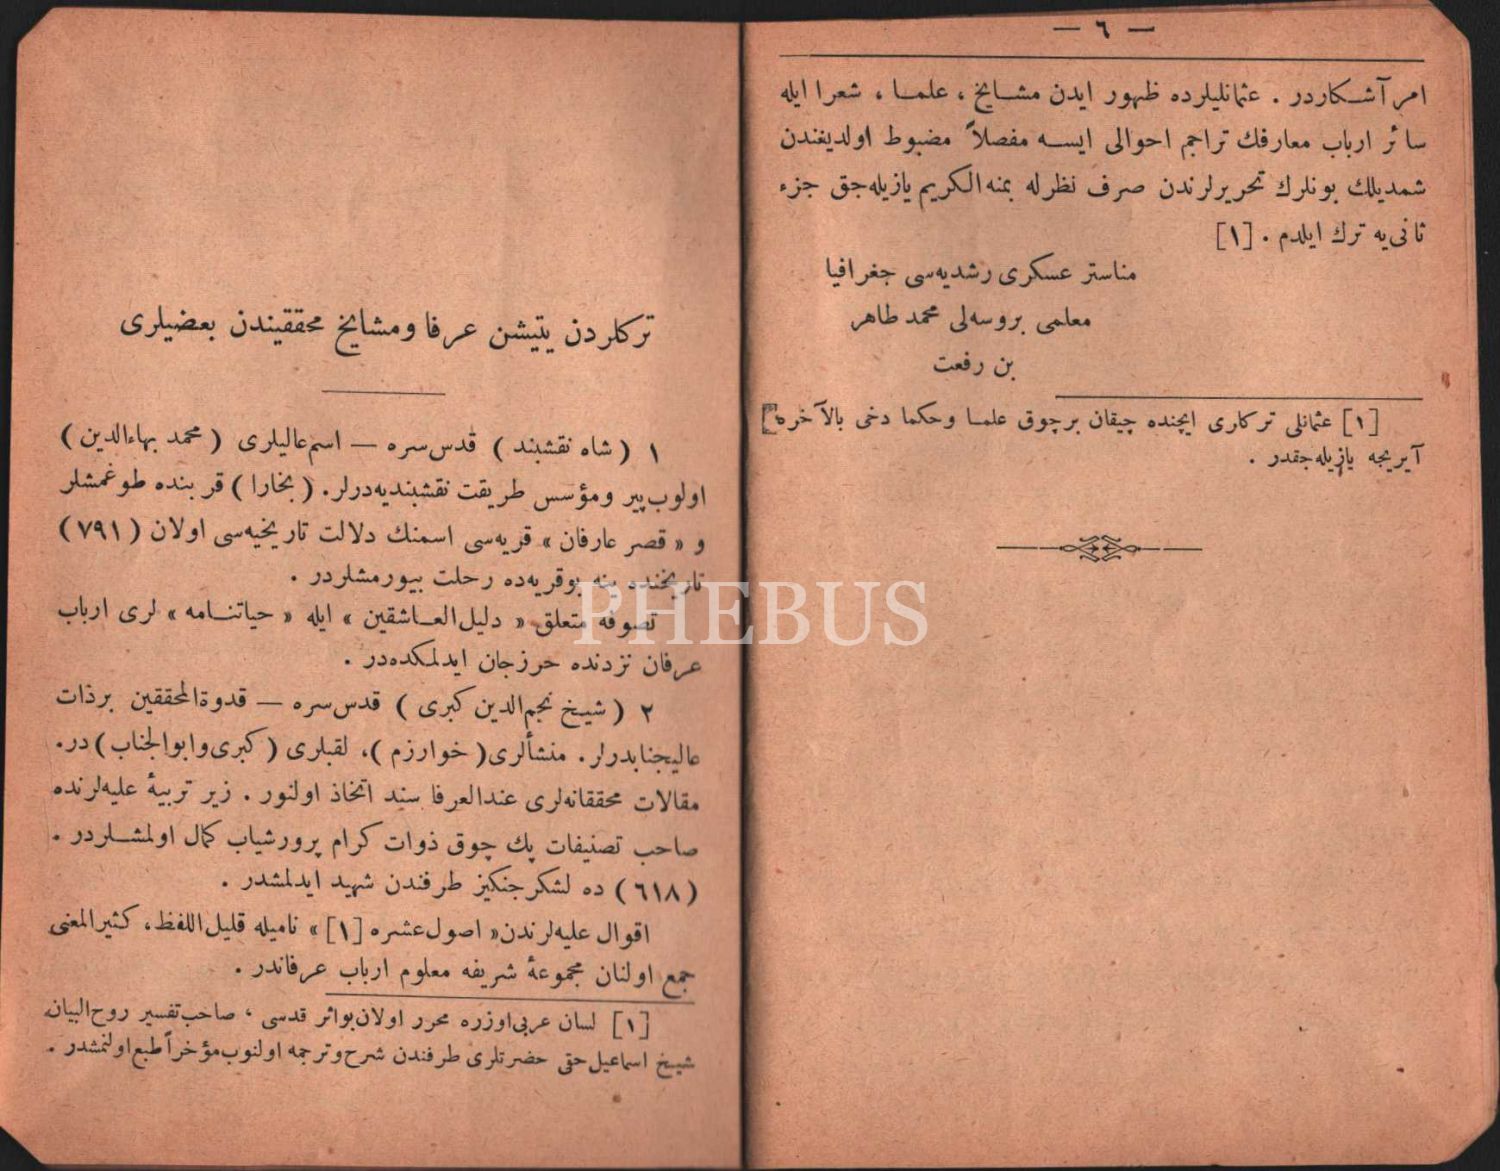 — ٦ —
امر آشـكاردر . عثمانليلرده ظهور ايدن مشـايخ ، علمـا ، شعرا ايله
سائر ارباب معارفك تراجم احوالى ايسـه مفصلاً مضبوط اولديغندن
شمديلك بونلرك تحريرلرندن صرف نظرله بمنه‌الكريم يازيله‌جق جزء
ثانى‌يه ترك ايلدم . [١]
مناستر عسكرى رشديه‌سى جغرافيا
معلمى بروسه‌لى محمد طاهر
بن رفعت
[١] عثمانلى تركلرى ايچنده چيقان برچوق علمـا وحكما دخى بالآخره
آيريجه يازيله‌جقدر .
تركلردن يتيشن عرفا ومشايخ محققيندن بعضيلرى
١ ( شاه نقشبند ) قدس‌سره — اسم‌عاليلرى ( محمد بهاءالدين )
اولوب‌پير ومؤسس طريقت نقشبنديه‌درلر. ( بخارا ) قربنده طوغمشلر
و « قصر عارفان » قريه‌سى اسمنك دلالت تاريخيه‌سى اولان ( ٧٩١ )
تاريخنده ينه بوقريه‌ده رحلت بيورمشلردر .
تصوفه متعلق « دليل‌العـاشقين » ايله « حياتنـامه » لرى ارباب
عرفان نزدنده حرزجان ايدلمكده‌در .
٢ ( شيخ نجم‌الدين كبرى ) قدس‌سره — قدوةالمحققين برذات
عاليجنابدرلر. منشألرى ( خوارزم )، لقبلرى ( كبرى‌وابوالجناب ) در.
مقالات محققانه‌لرى عندالعرفا سند اتخاذ اولنور . زير تربيهٔ عليه‌لرنده
صاحب تصنيفات پك چوق ذوات كرام پرورشياب كمال اولمشـلردر .
( ٦١٨ ) ده لشكرجنكيز طرفندن شهيد ايدلمشدر .
اقوال عليه‌لرندن « اصول‌عشره [١] » ناميله قليل‌اللفظ، كثيرالمعنى
جمع اولنان مجموعهٔ شريفه معلوم ارباب عرفاندر .
[١] لسان عربى‌اوزره محرر اولان‌بواثر قدسى ، صاحب‌تفسير روح‌البيان
شيخ اسماعيل‌حقى حضرتلرى طرفندن شرح‌وترجمه اولنوب‌مؤخراً طبع‌اولنمشدر .
PHEBUS